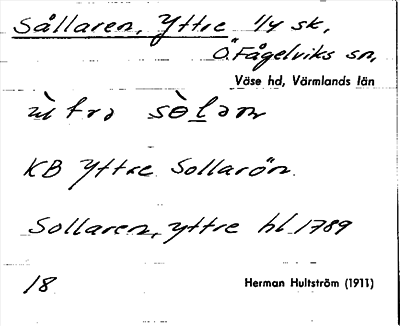 Sållaren, Yttre 1/4 sk,
Ö. Fågelviks sn,
Väse hd, Värmlands län
ù t r ə sò l ə n
KB Yttre Sollarön.
Sollaren, yttre hl 1789
18 Herman Hultström (1911)